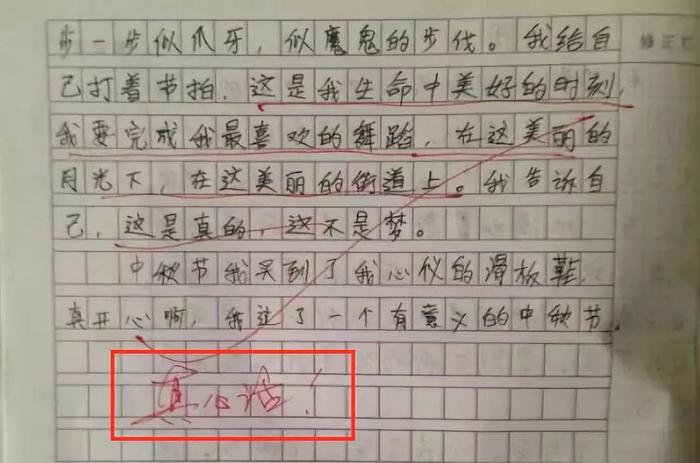 步一步似爪牙，似魔鬼的步伐。我给自
己打着节拍，这是我生命中美好的时刻，
我要完成我最喜欢的舞蹈，在这美丽的
月光下，在这美丽的街道上。我告诉自
己，这是真的，这不是梦。
中秋节我买到了我心仪的滑板鞋，
真开心啊，我过了一个有意义的中秋节。
真心话！